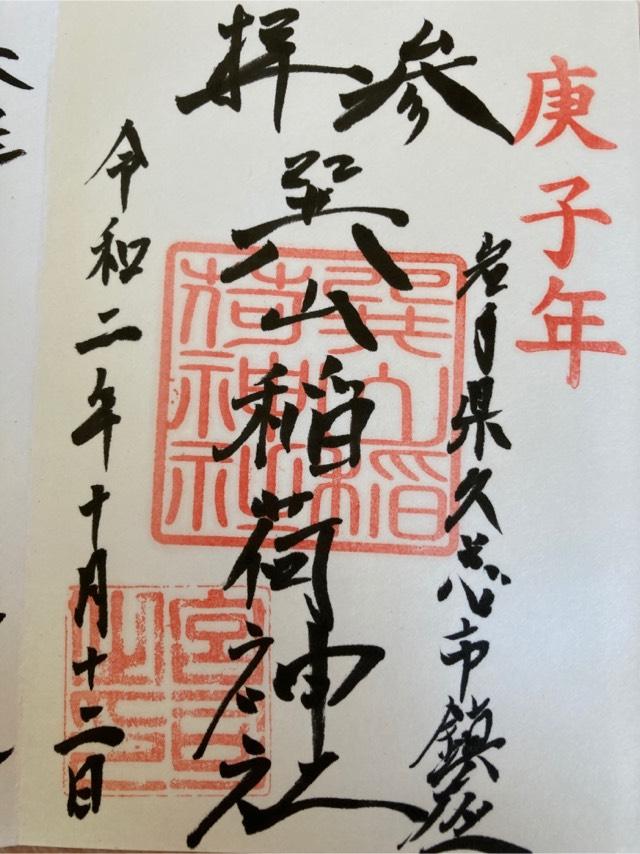 庚子年
岩手県久慈市鎮座
参拝
巽山稲荷神社
令和二年十月十二日
巽山稲
荷神社
宮司
之印